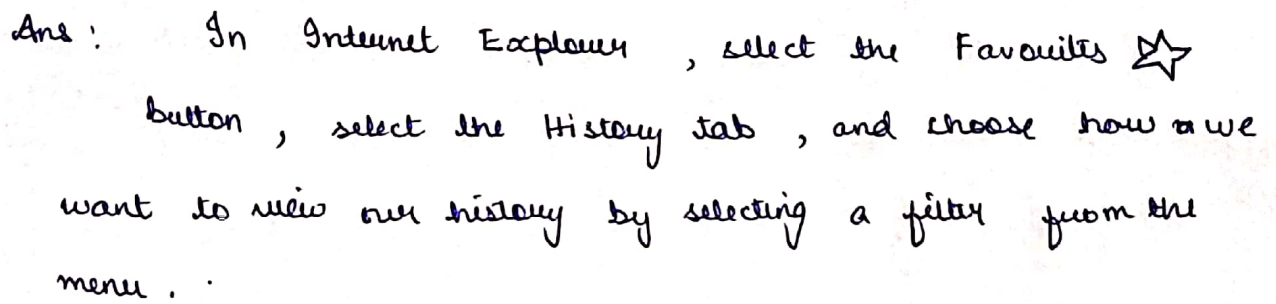 Ans : In Internet Explorer , select the Favourites ☆
button , select the History tab , and choose how we
want to view our history by selecting a filter from the
menu .